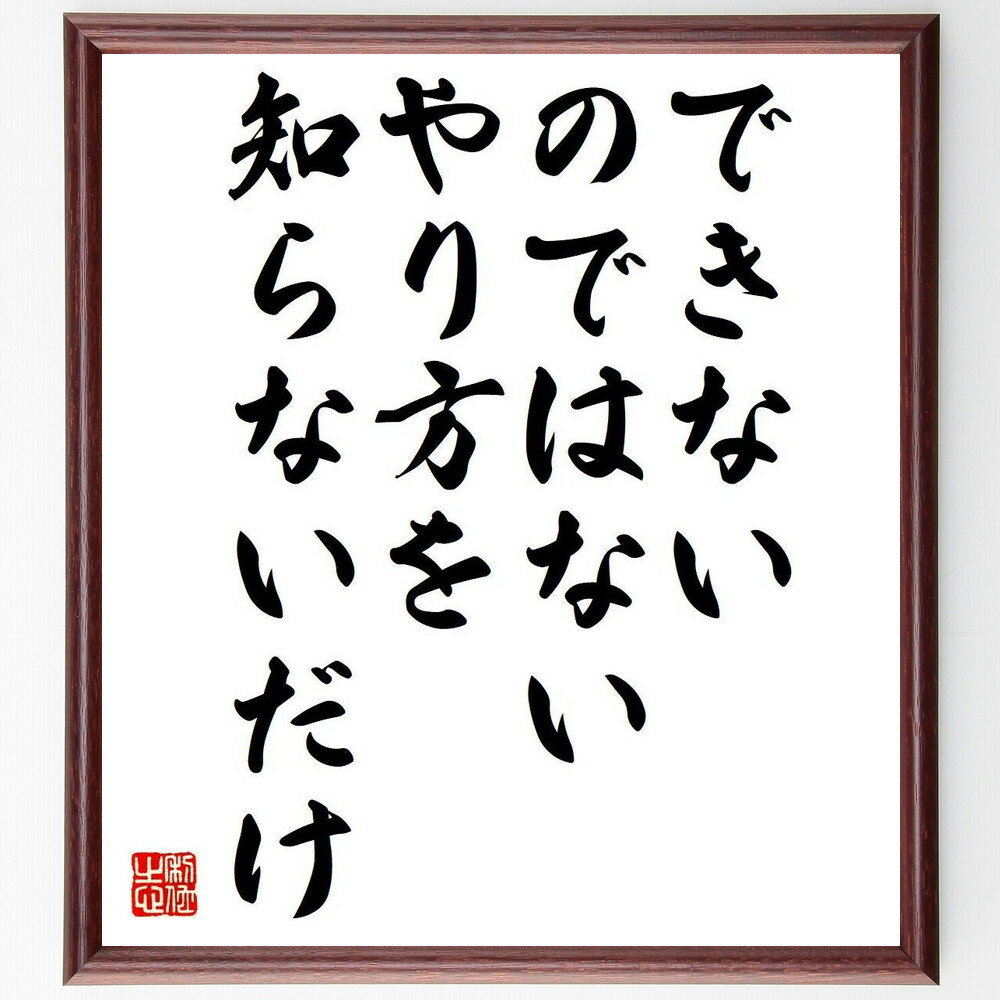 できない
のではない
やり方を
知らないだけ